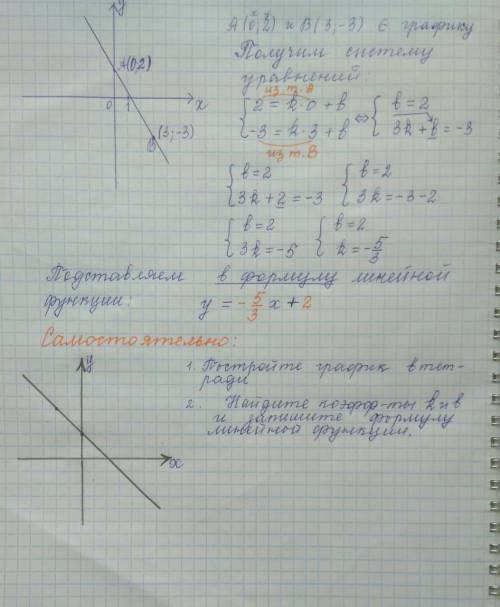 y
A(0,2)
0 1 x
B (3; -3)
x y
A(0,2) и B(3;-3) ∈ графику
Получим систему
уравнений:
из т. А
{ 2 = k·0 + b ⇔ { b = 2
{ -3 = k·3 + b { 3k + b = -3
из т. В
{ b = 2 { b = 2
{ 3k + 2 = -3 { 3k = -3 - 2
{ b = 2 { b = 2
{ 3k = -5 { k = -5/3
Подставляем в формулу линейной
функции: y = -5/3 x + 2
Самостоятельно:
y
x
1. Постройте график в тет-
ради
2. Найдите коэфф-ты k и b
и запишите формулу
линейной функции.